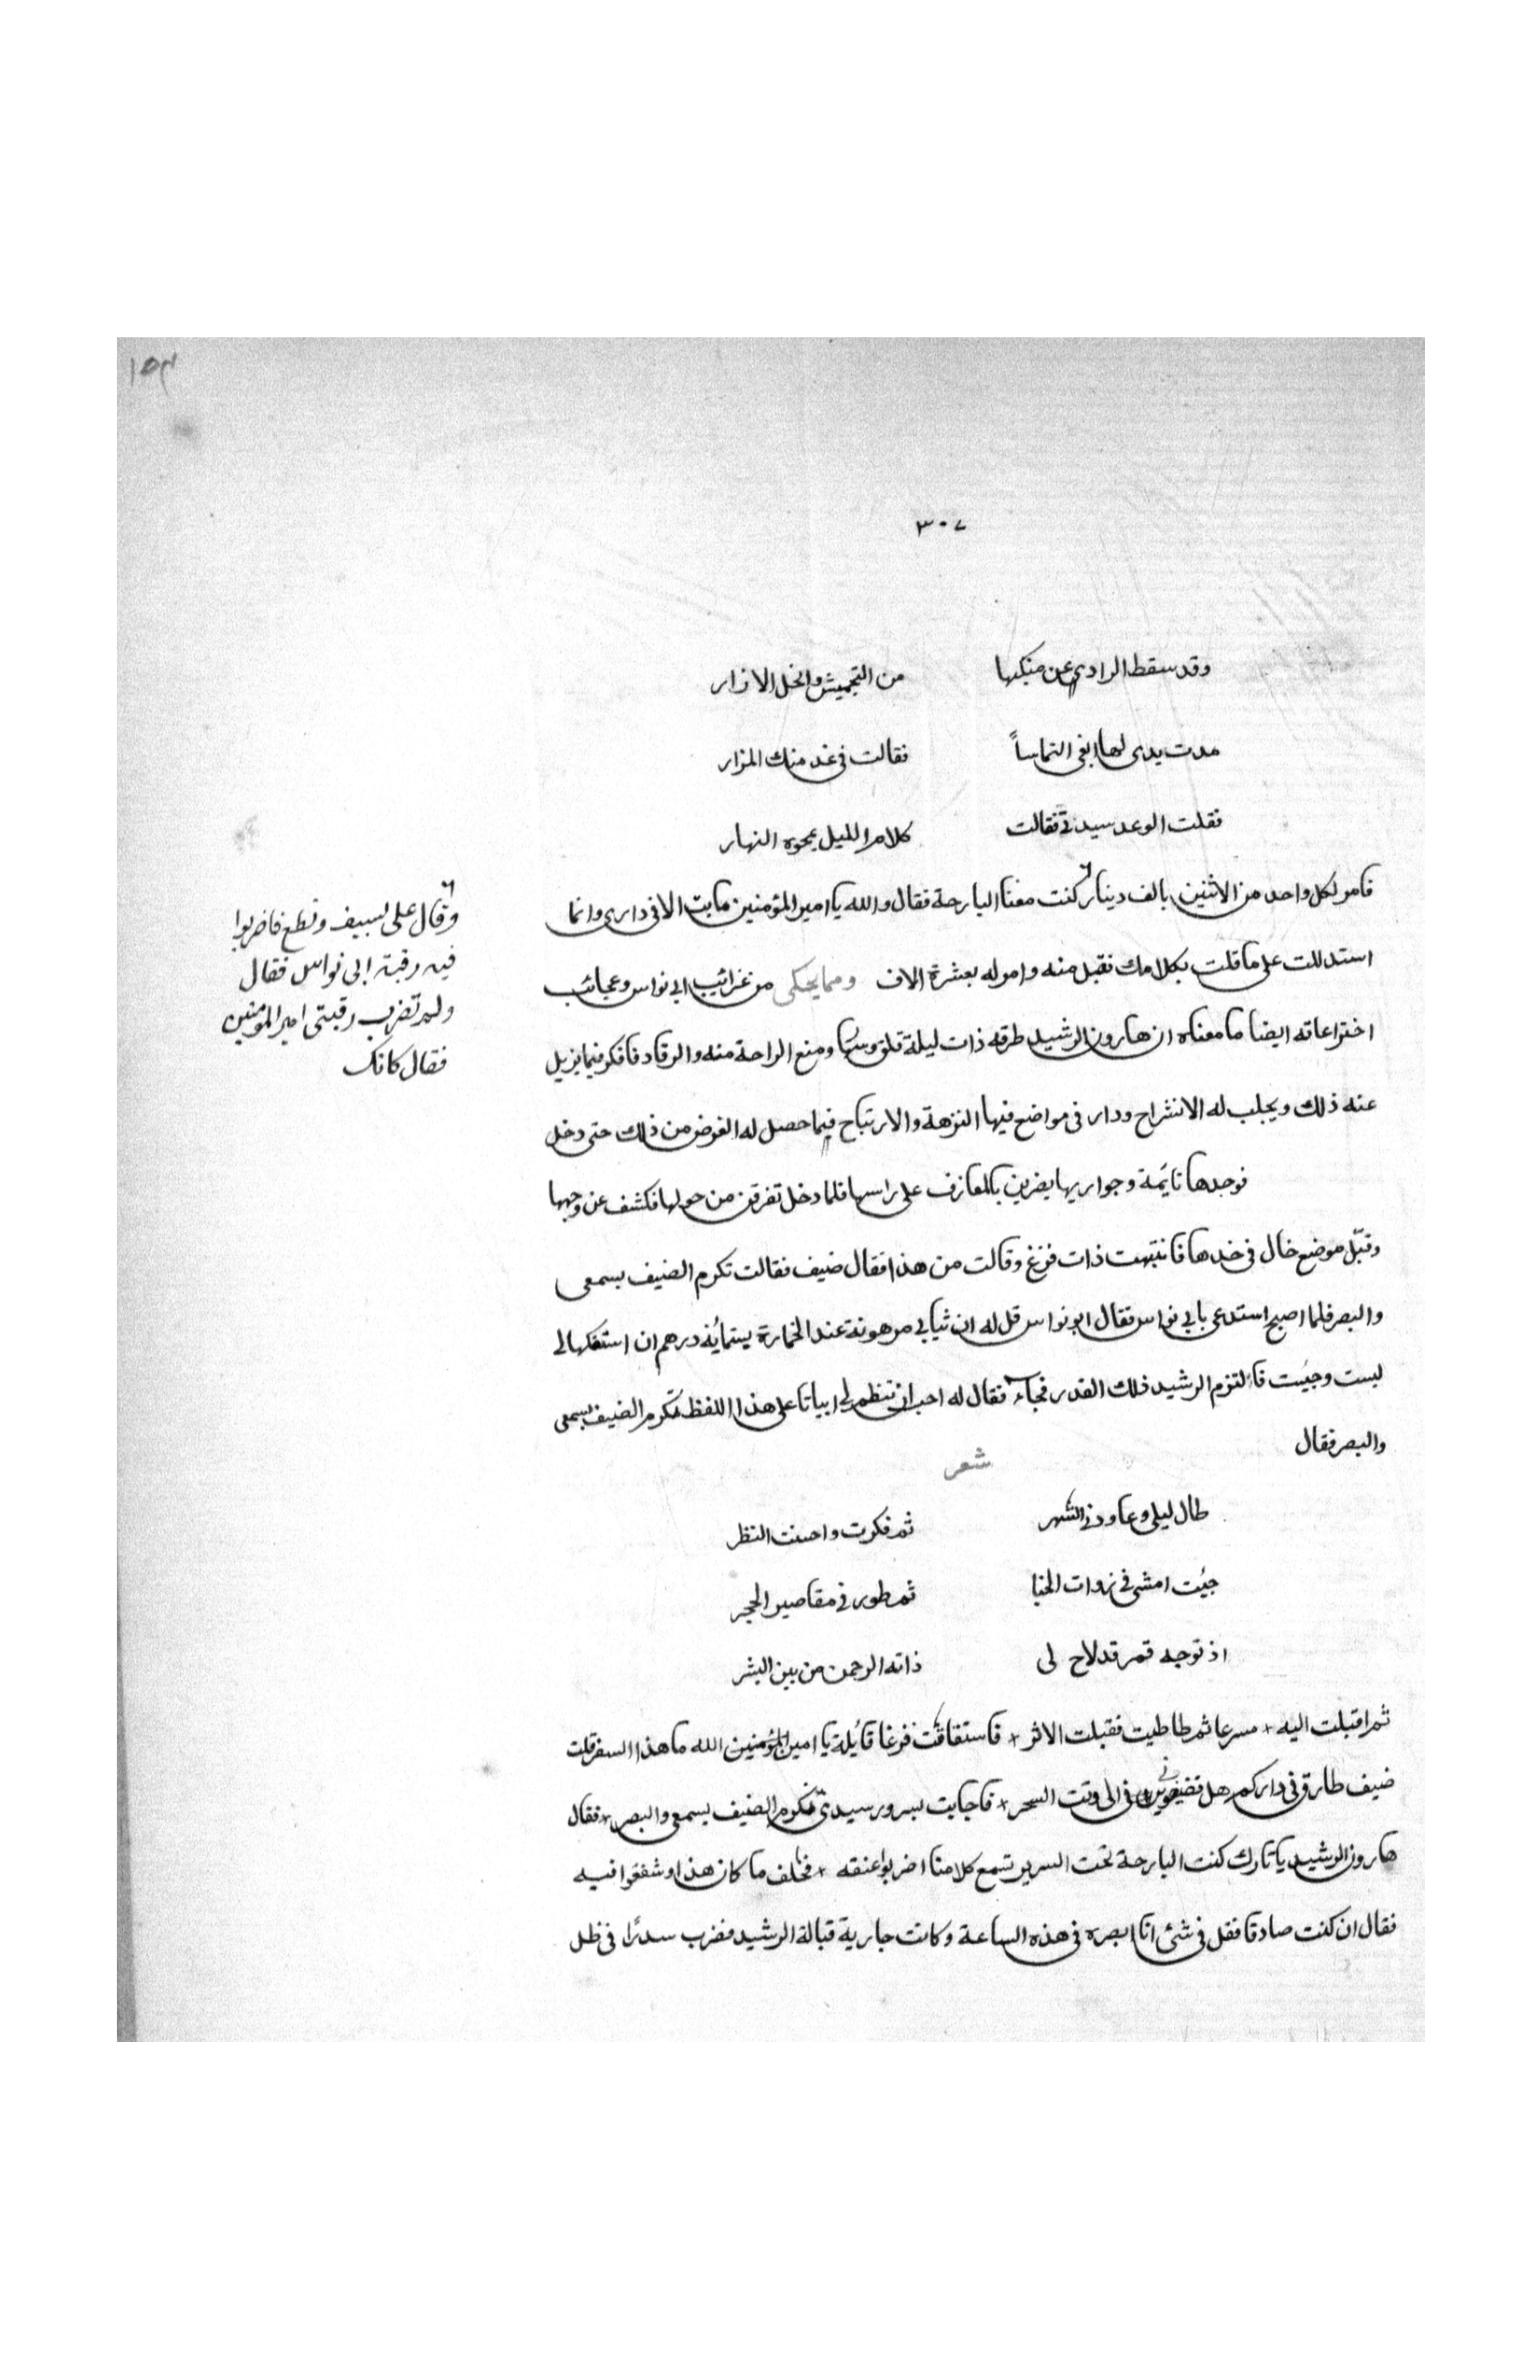 ١٥٣
٣٠٧
وقد سقط الرادي عن منكبها من التجميش وانحل الازار
مدت يدى لها ابغى التماساً فقالت فى غد منك المزار
فقلت الوعد سيدتى فقالت كلام الليل يمحوه النهار
فامر لكل واحد من الاثنين بالف دينار كنت معنا البارحة فقال والله يا امير المؤمنين ما بت الا فى دارى وانما
استدللت على ما قلت بكلامك فقبل منه وامر له بعشرة الاف ومما يحكى من غرائب ابى نواس وعجائب
اختراعاته ايضا ما معناه ان هارون الرشيد طرقه ذات ليلة قلق ومنع الراحة منه والرقاد فافكر فيما يزيل
عنه ذلك ويجلب له الانشراح ودار فى مواضع فيها النزهة والارتياح فما حصل له الغرض من ذلك حتى دخل
فوجدها نايمة وجواريها يضربن بالمعازف على راسها فلما دخل تفرقن من حولها فكشف عن وجهها
وقبّل موضع خال فى خدها فانتبهت ذات فزع وقالت من هذا فقال ضيف فقالت تكرم الضيف بسمعى
والبصر فلما اصبح استدعى بابى نواس فقال ابو نواس قل له ان ثيابى مرهونة عند الخمارة بستمائة درهم ان استفكها لى
لبست وجيت فالتزم الرشيد ذلك القدر فجاء فقال له احب ان تنظم لى ابياتا على هذا اللفظ تكرم الضيف بسمعى
والبصر فقال
شعر
طال ليلى وعاودنى السهر ثم فكرت واحسنت النظر
جيت امشى فى زوات الخبا ثم طور فى مقاصير الحجر
اذ توجه قمر قد لاح لى ذاته الرحمن من بين البشر
ثم اقبلت اليه مسرعا ثم طاطيت فقبلت الاثر فاستفاقت فزعا قايلة يا امين الله ما هذا السفر قلت
ضيف طارق فى داركم هل الى وقت السحر فاجابت بسرور سيدى تكرم الضيف بسمعى والبصر فقال
هارون الرشيد يا تارك كنت البارحة تحت السرير تسمع كلامنا اضربوا عنقه فحلف ما كان هذا وشفعوا فيه
فقال ان كنت صادقا فقل فى شئ انا ابصره فى هذه الساعة وكانت جارية قبالة الرشيد فضرب سدرًا فى ظل
وقال على بسيف ونطع فاضربوا
فيه رقبة ابى نواس فقال
ولم تضرب رقبتى امير المومنين
فقال كانك